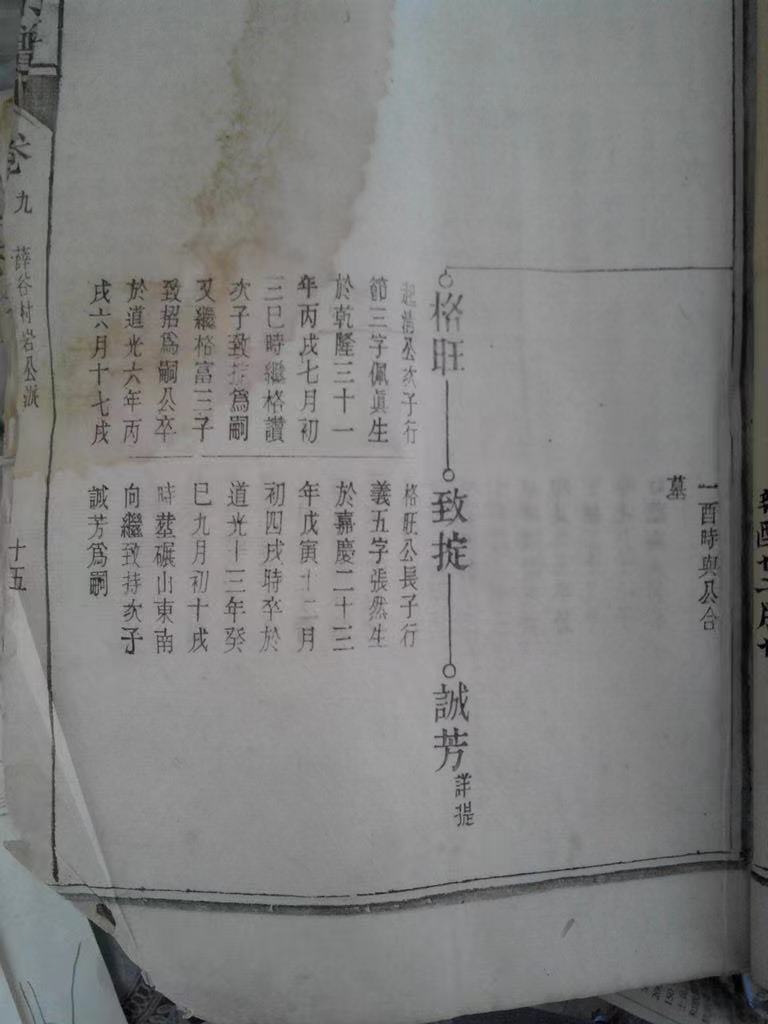 一酉時與公合
墓
格旺
致掟
誠芳
詳提
公次子行
節三字佩真生
於乾隆三十一
年丙戌七月初
三巳時繼格讚
次子致為嗣
又繼格富三子
致招為嗣公卒
於道光六年丙
戌六月十七戌
格旺公長子行
義五字張然生
於嘉慶二十三
年戊寅十二月
初四戌時卒於
道光十三年癸
巳九月初十戌
時塟碾山東南
向繼致持次子
誠芳為嗣
譜
卷
九
薛谷村岩公派
十五